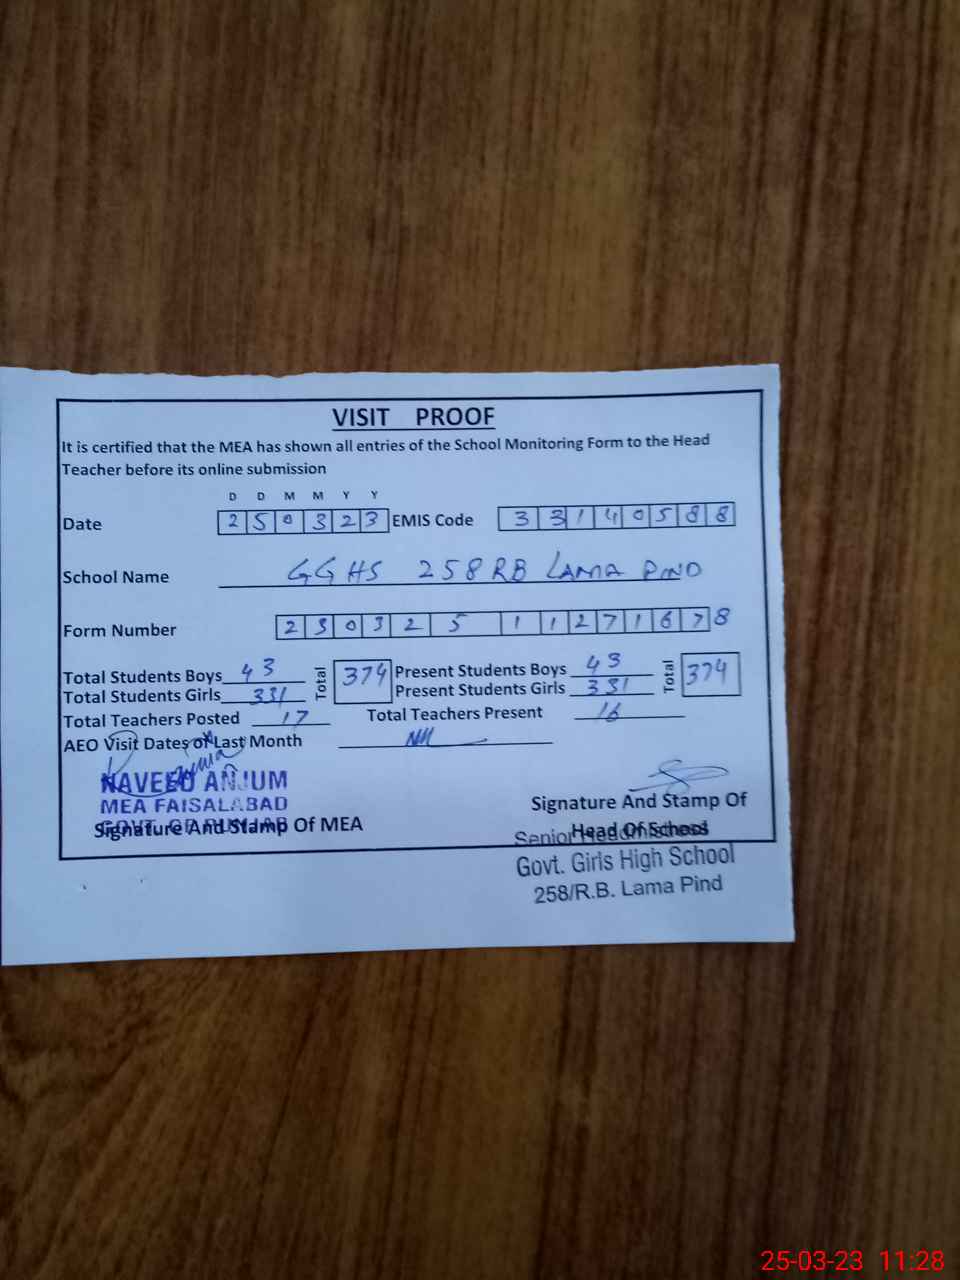 VISIT PROOF
It is certified that the MEA has shown all entries of the School Monitoring Form to the Head
Teacher before its online submission
D D M M Y Y
Date 2 5 0 3 2 3 EMIS Code 3 3 1 4 0 5 8 8
School Name GGHS 258 RB LAMA PIND
Form Number 2 3 0 3 2 5 1 1 2 7 1 6 7 8
Total Students Boys 43 Total 374 Present Students Boys 43 Total 374
Total Students Girls 331 Present Students Girls 331
Total Teachers Posted 17 Total Teachers Present 16
AEO Visit Dates of Last Month Nil
NAVEED ANJUM
MEA FAISALABAD
GOVT. OF PUNJAB
Signature And Stamp Of MEA
Signature And Stamp Of
Head Of School
Senior Headmistress
Govt. Girls High School
258/R.B. Lama Pind
25-03-23 11:28